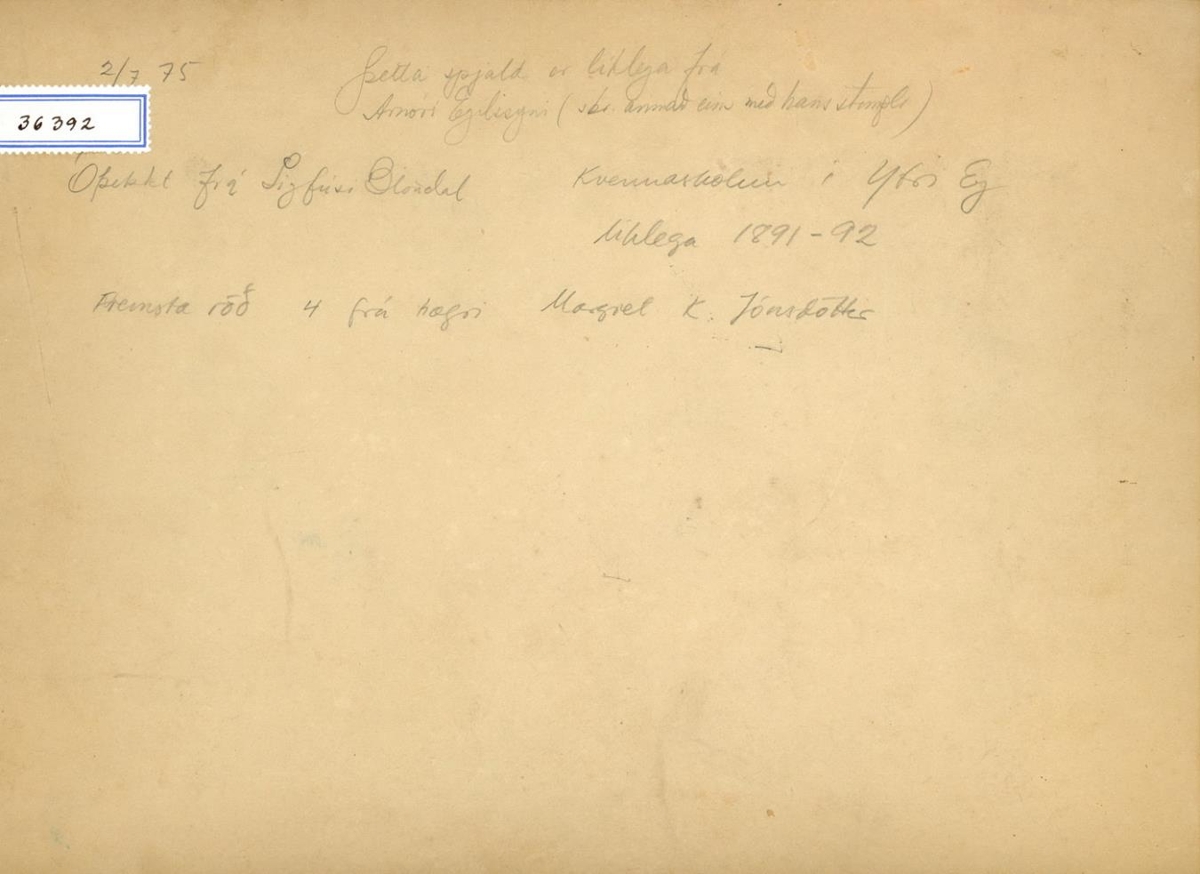 2/7 75
Þetta spjald er liklega frá
Arnóri Egilssyni (sbr. annað eins með hans stimpli)
36 392
Óþekkt frá Sigfúsi Blöndal
Kvennaskólinn í Ytri Ey
liklega 1891-92
Fremsta röð 4 frá hægri Margret K. Jónsdóttir